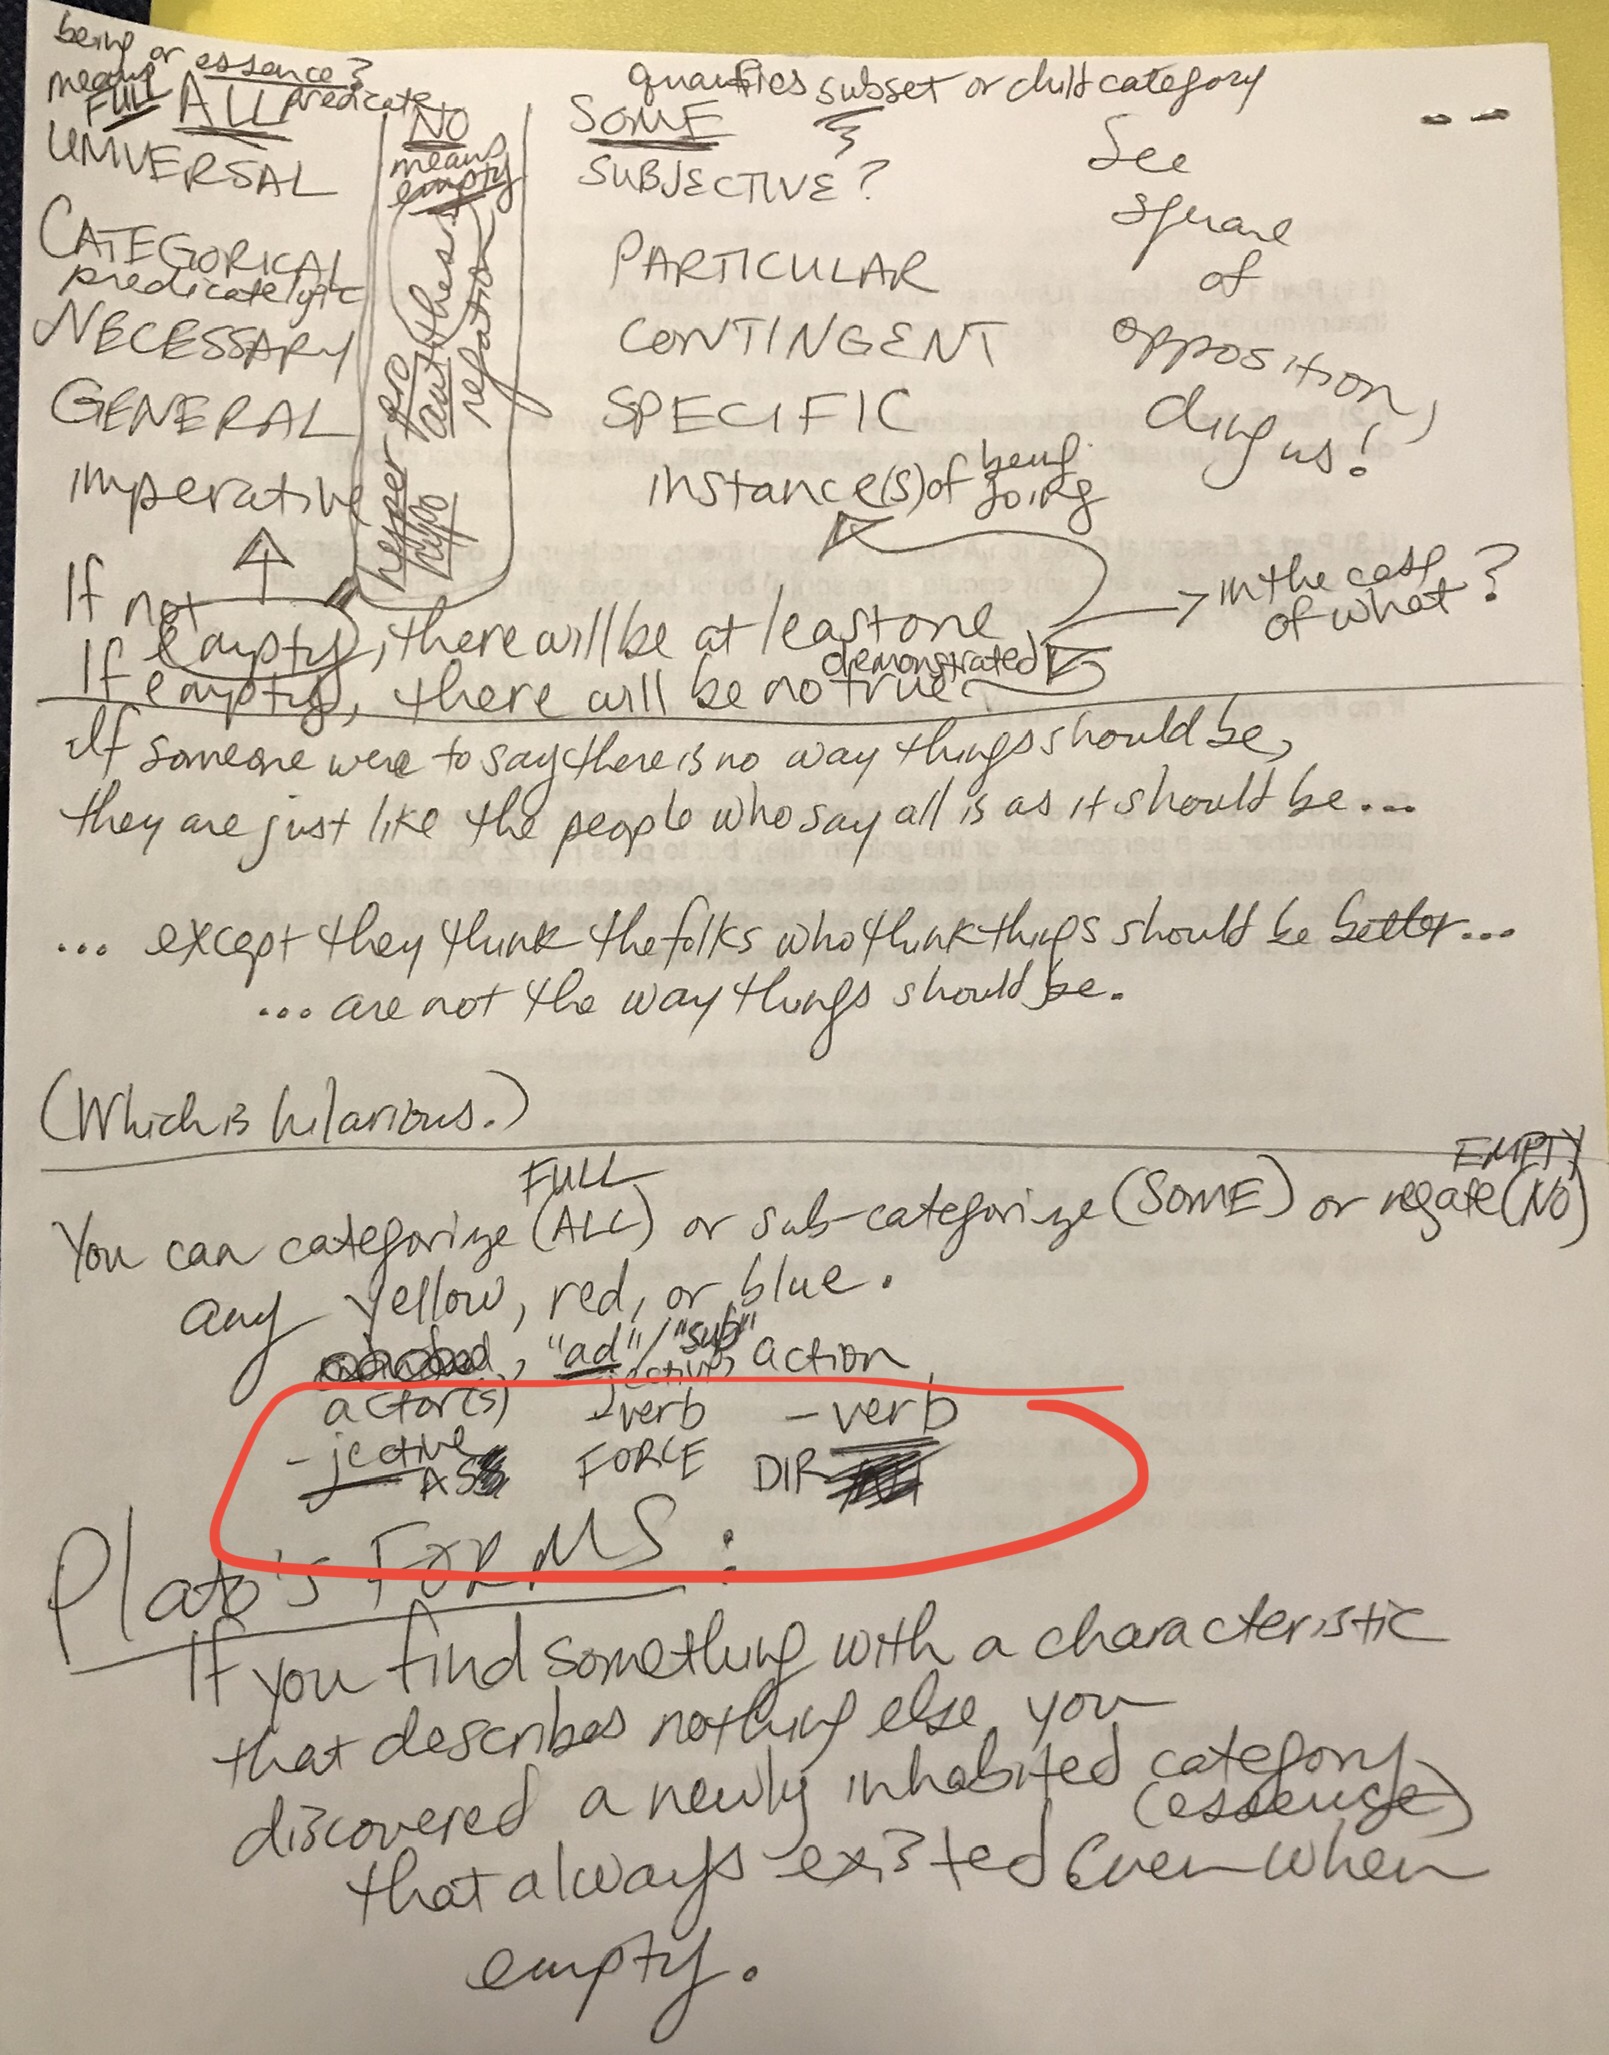 being or essence?
means predicate
FULL ALL
UNIVERSAL
CATEGORICAL
predicate logic
NECESSARY
GENERAL
imperative
NO
means
empty
pro
antithesis
negation
hyper
hypo
quantifies subset or child category
SOME
SUBJECTIVE?
PARTICULAR
CONTINGENT
SPECIFIC
instance(s) of being
doing
See
square
of
opposition,
dingus!
If not
empty, there will be at least one
demonstrated
If empty, there will be no true
in the case
of what?
If someone were to say there is no way things should be,
they are just like the people who say all is as it should be...
... except they think the folks who think things should be better...
... are not the way things should be.
(Which is hilarious.)
FULL
EMPTY
You can categorize (ALL) or sub-categorize (SOME) or negate (NO)
any yellow, red, or blue.
, "ad"/"sub" action
jective,
actor(s) -verb -verb
-jective
AS FORCE DIR
Plato's FORMS:
If you find something with a characteristic
that describes nothing else you
discovered a newly inhabited category
(essence)
that always existed even when
empty.